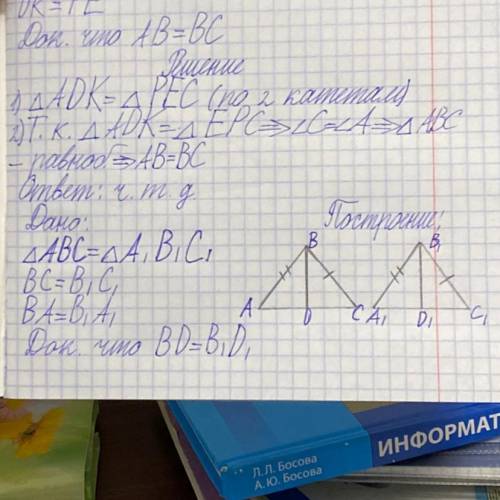 DK=PE
Док. что AB=BC
Решение
1) △ADK=△PEC (по 2 катетам)
2) Т.к. △ADK=△EPC⇒∠C=∠A⇒△ABC
- равноб⇒AB=BC
Ответ: ч.т.д.
Дано:
Построение:
△ABC=△A₁B₁C₁
BC=B₁C₁
BA=B₁A₁
Док. что BD=B₁D₁
B
B₁
A
D
C
A₁
D₁
C₁
Л.Л. Босова
А.Ю. Босова
ИНФОРМАТ